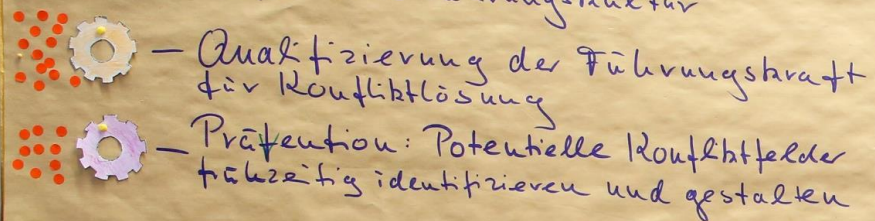 – Qualifizierung der Führungskraft
für Konfliktlösung
– Prävention: Potentielle Konfliktfelder
frühzeitig identifizieren und gestalten